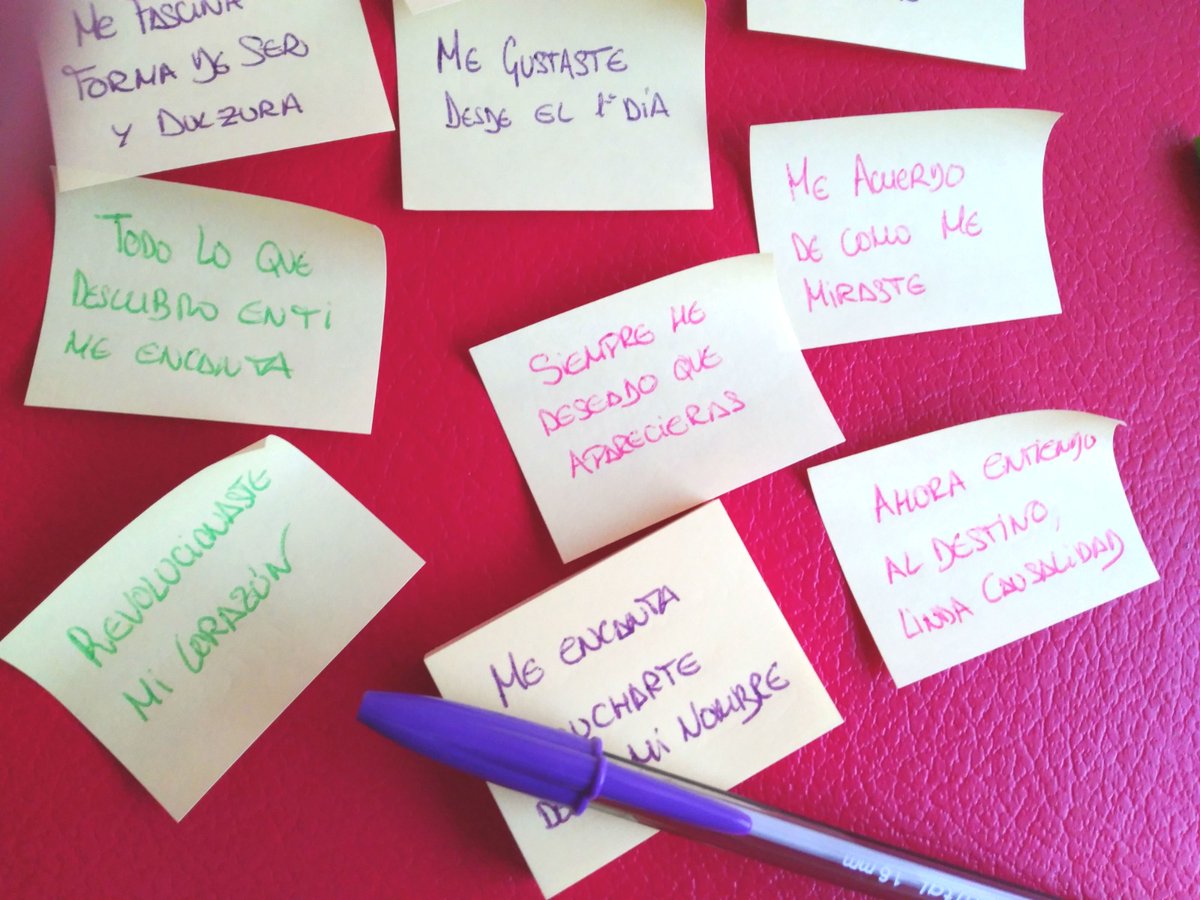 ME FASCINA
FORMA DE SER
Y DULZURA
ME GUSTASTE
DESDE EL 1er DÍA
ME ACUERDO
DE COMO ME
MIRASTE
TODO LO QUE
DESCUBRO EN TI
ME ENCANTA
SIEMPRE HE
DESEADO QUE
APARECIERAS
AHORA ENTIENDO
AL DESTINO,
LINDA CAUSALIDAD
REVOLUCIONASTE
MI CORAZÓN
ME ENCANTA
UCHARTE
MI NOMBRE
1.6 mm